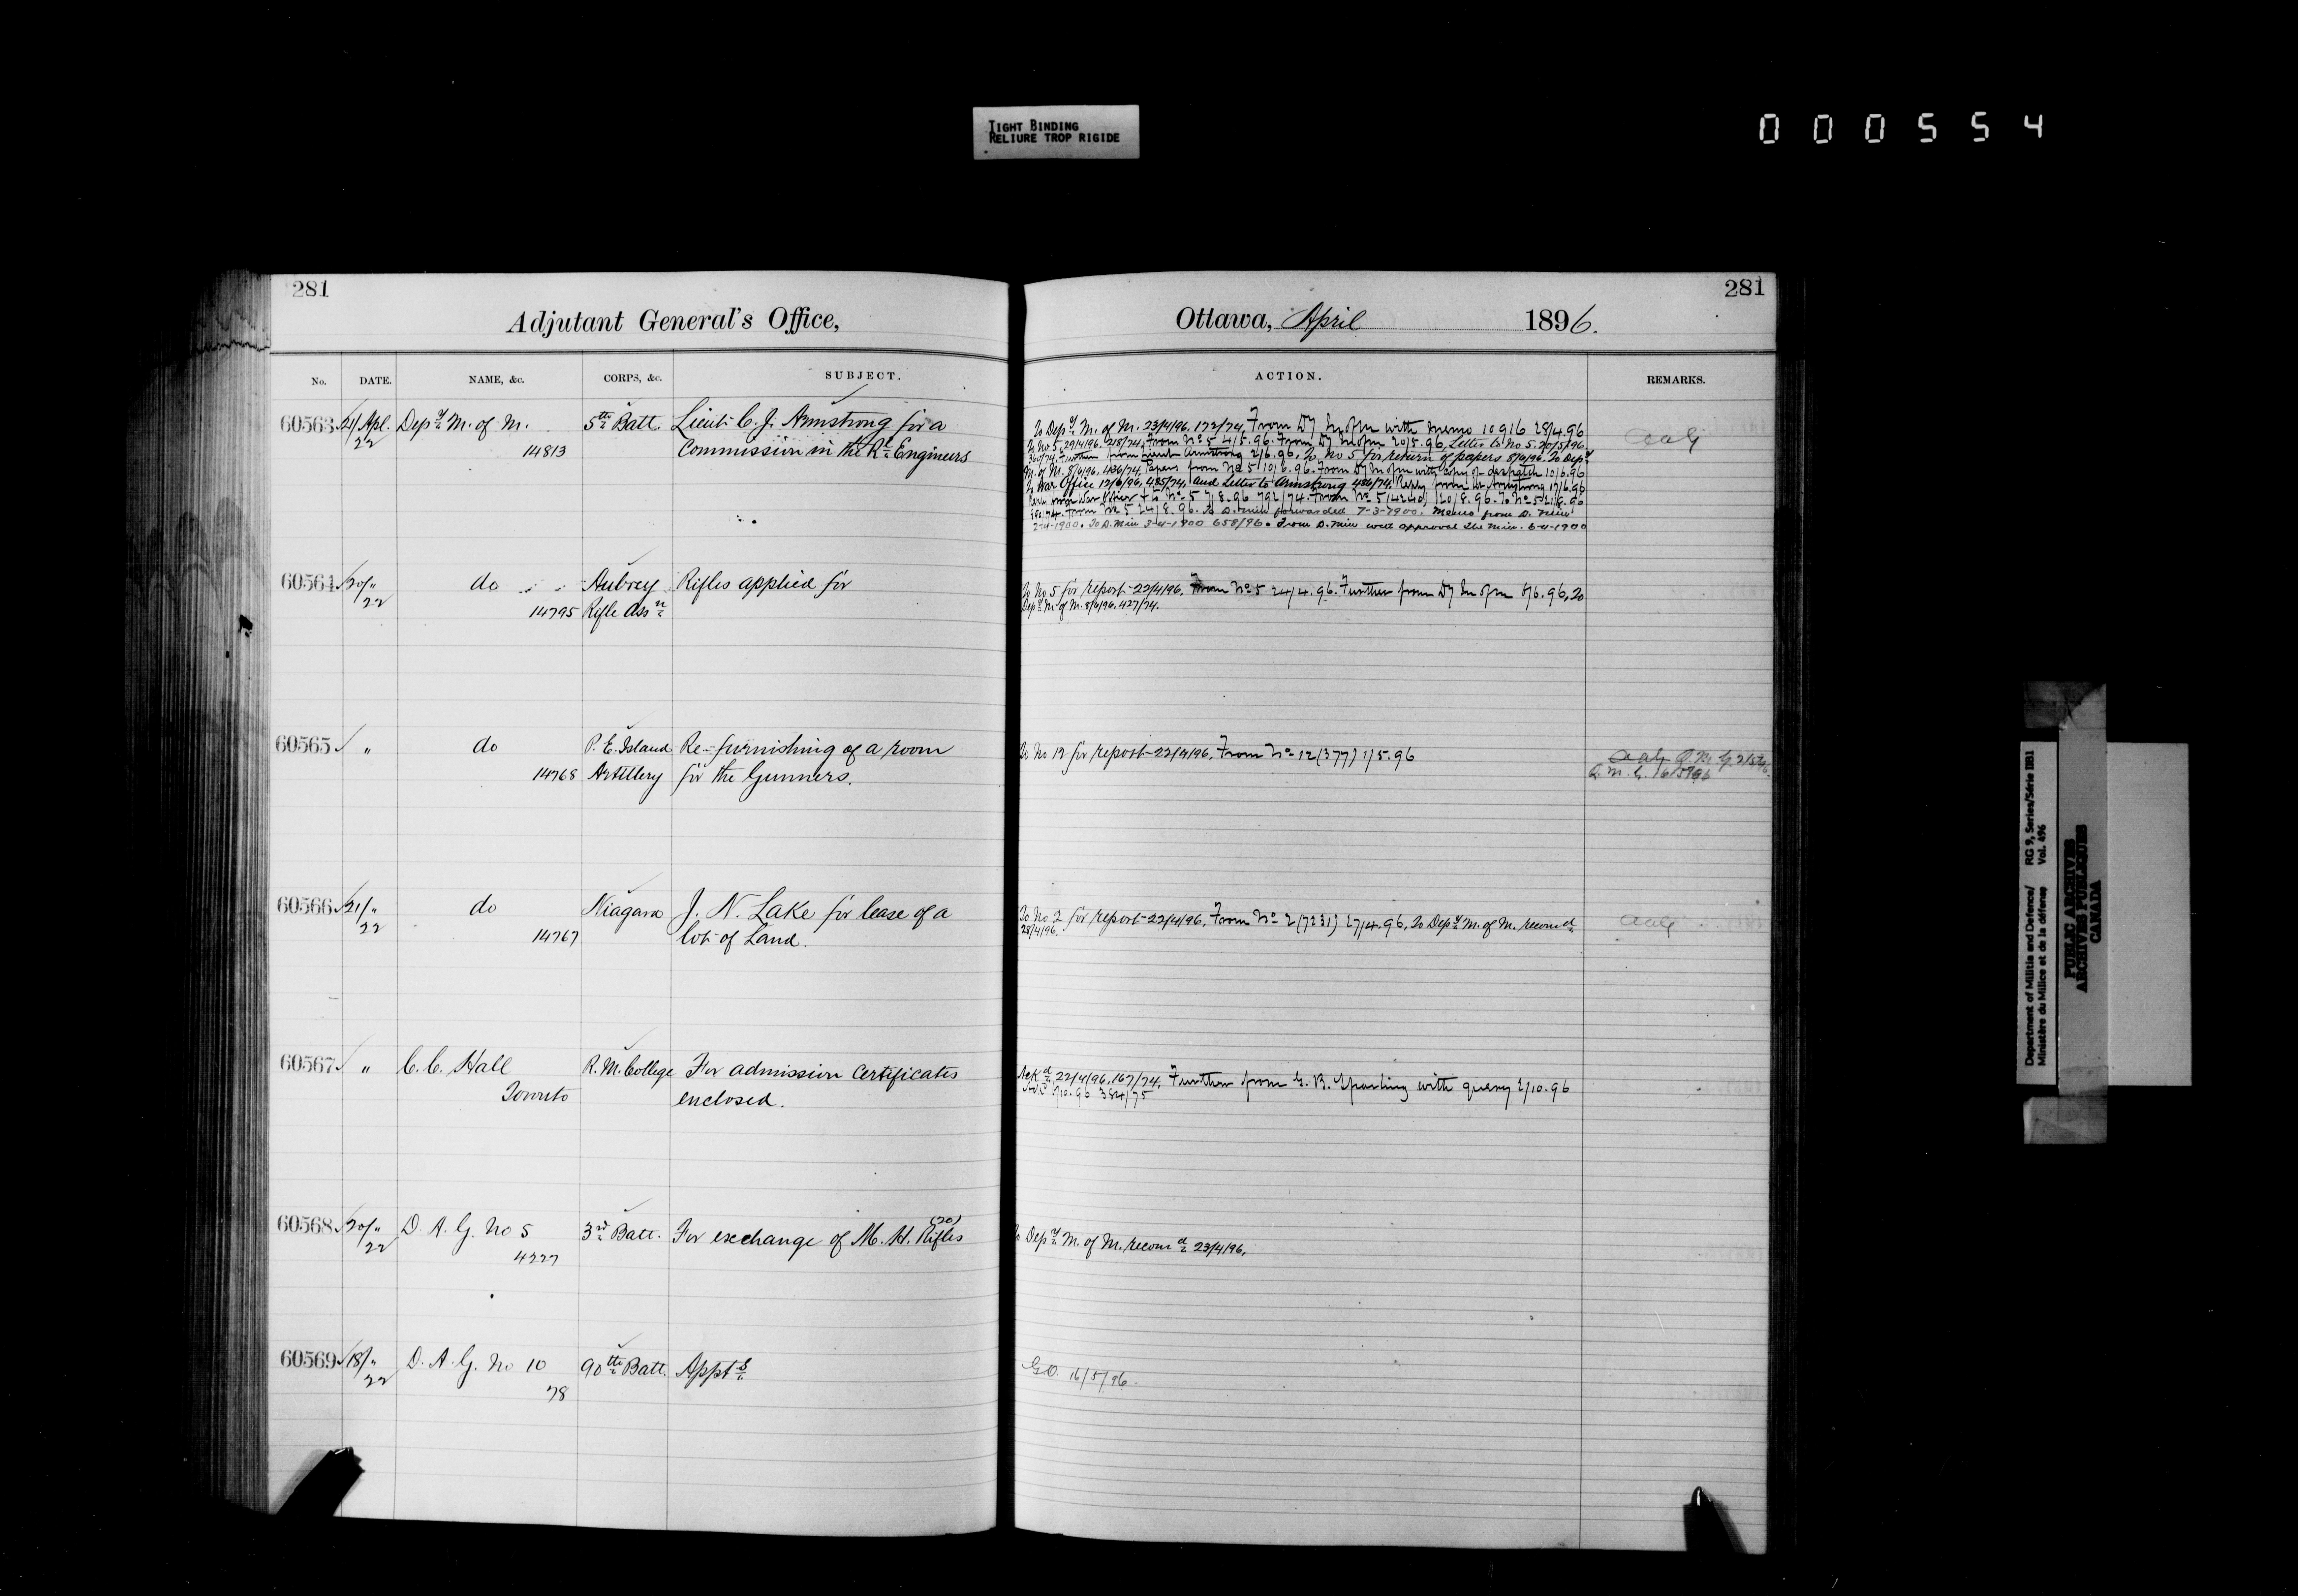 TIGHT BINDING
RELIURE TROP RIGIDE
000554
281
Adjutant General's Office,
No. DATE. NAME, &c. CORPS, &c. SUBJECT.
60563 21/Apl. Depy M. of M. 5th Batt. Lieut C. J. Armstrong for a
22 14813 Commission in the Rl Engineers
60564 20/" do Aubrey Rifles applied for
22 14795 Rifle Assn
60565 " do P. E. Island Re-furnishing of a room
14768 Artillery for the Gunners.
60566 21/" do Niagara J. N. Lake for lease of a
22 14767 lot of Land.
60567 " C. C. Hall R. M. College For admission certificates
Toronto enclosed.
60568 20/" D. A. G. No 5 3rd Batt. For exchange of M. H. Rifles (20)
22 4227
60569 18/" D. A. G. No 10 90th Batt. Appts
22 78
281
Ottawa, April 1896.
ACTION. REMARKS.
To Depy M. of M. 23/4/96. 172/74. From Dy M of M with memo 10916 28/4.96
To No 5, 29/4/96. 218/74. From No 5 4/5.96. From Dy M of M 20/5.96. Letter to No 5. 20/5/96
360/74. Further from Lieut Armstrong 2/6.96. To No 5 for return of papers 8/6/96. To Depy
M. of M. 8/6/96. 436/74. Papers from No 5 10/6.96. From Dy M of M with copy of despatch 10/6.96
To War Office 12/6/96. 485/74. and Letter to Armstrong 486/74. Reply from Lt Armstrong 17/6.96
from War Office To No 5 7/8.96 792/74. From No 5 (4240) 20/8.96. To No 5 21/8.96
From No 5 24/8.96. To D. Min forwarded 7-3-1900. Memo from D. Min
2-4-1900. To D. Min 3-4-1900 658/96. From D. Min with approval the Min. 6-4-1900
AAG
To No 5 for report 22/4/96. From No 5 24/4.96. Further from Dy M of M 8/6.96, To
Depy M. of M. 8/6/96. 427/74.
To No 12 for report 22/4/96. From No 12 (377) 1/5.96
AAG Q. M. G. 2/5/96.
Q. M. G. 16/5/96
To No 2 for report 22/4/96. From No 2 (7231) 27/4.96. To Depy M. of M. recomd
28/4/96.
AAG
Ackd 22/4/96. 167/74. Further from G. B. Sparling with query 2/10.96
Ackd 5/10.96 384/75
To Depy M. of M. recomd 23/4/96.
GO. 16/5/96.
Department of Militia and Defence/ RG 9, Series/Série IIB1
Ministère du Milice et de la défense Vol. 496
PUBLIC ARCHIVES
ARCHIVES PUBLIQUES
CANADA